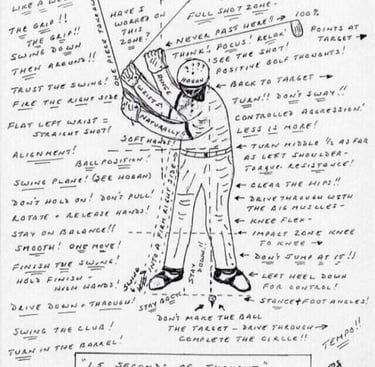 LIKE A
THE GRIP!!
THE GRIP!!
SWING DOWN
THEN AROUND!!
TRUST THE SWING!
FIRE THE RIGHT SIDE
FLAT LEFT WRIST =
STRAIGHT SHOT!
ALIGNMENT!
BALL POSITION!
SWING PLANE! (SEE HOGAN)
DON'T HOLD ON! DON'T PULL!
ROTATE + RELEASE HANDS!
STAY ON BALANCE!!
SMOOTH! ONE MOVE!
FINISH THE SWING!
HOLD FINISH -
HIGH HANDS!
DRIVE DOWN + THROUGH!
SWING THE CLUB!
TURN IN THE BARREL!
ONE PIECE
HAVE I
WORKED ON
THIS ZONE?
HINGE
WRISTS
NATURALLY!
SOFT HANDS!
HOGAN
INTO A FIRM RIGHT SIDE
STAY
DOWN!!
SWING
STAY BACK
FULL SHOT ZONE-
NEVER PAST HERE!!
100%
POINTS AT
TARGET
THINK!, FOCUS! RELAX!
SEE THE SHOT!
POSITIVE GOLF THOUGHTS!
BACK TO TARGET
TURN!! DON'T SWAY!!
CONTROLLED AGGRESSION!
LESS IS MORE!
TURN MIDDLE 1/2 AS FAR
AS LEFT SHOULDER-
TORQUE! RESISTANCE!
CLEAR THE HIPS!!
DRIVE THROUGH WITH
THE BIG MUSCLES -
KNEE FLEX -
IMPACT ZONE KNEE
TO KNEE
DON'T JUMP AT IT!!
LEFT HEEL DOWN
FOR CONTROL!
STANCE + FOOT ANGLES!
DON'T MAKE THE BALL
THE TARGET - DRIVE THROUGH
COMPLETE THE CIRCLE!!
TEMPO!!
"1.5 SECONDS OF THOUGHT"